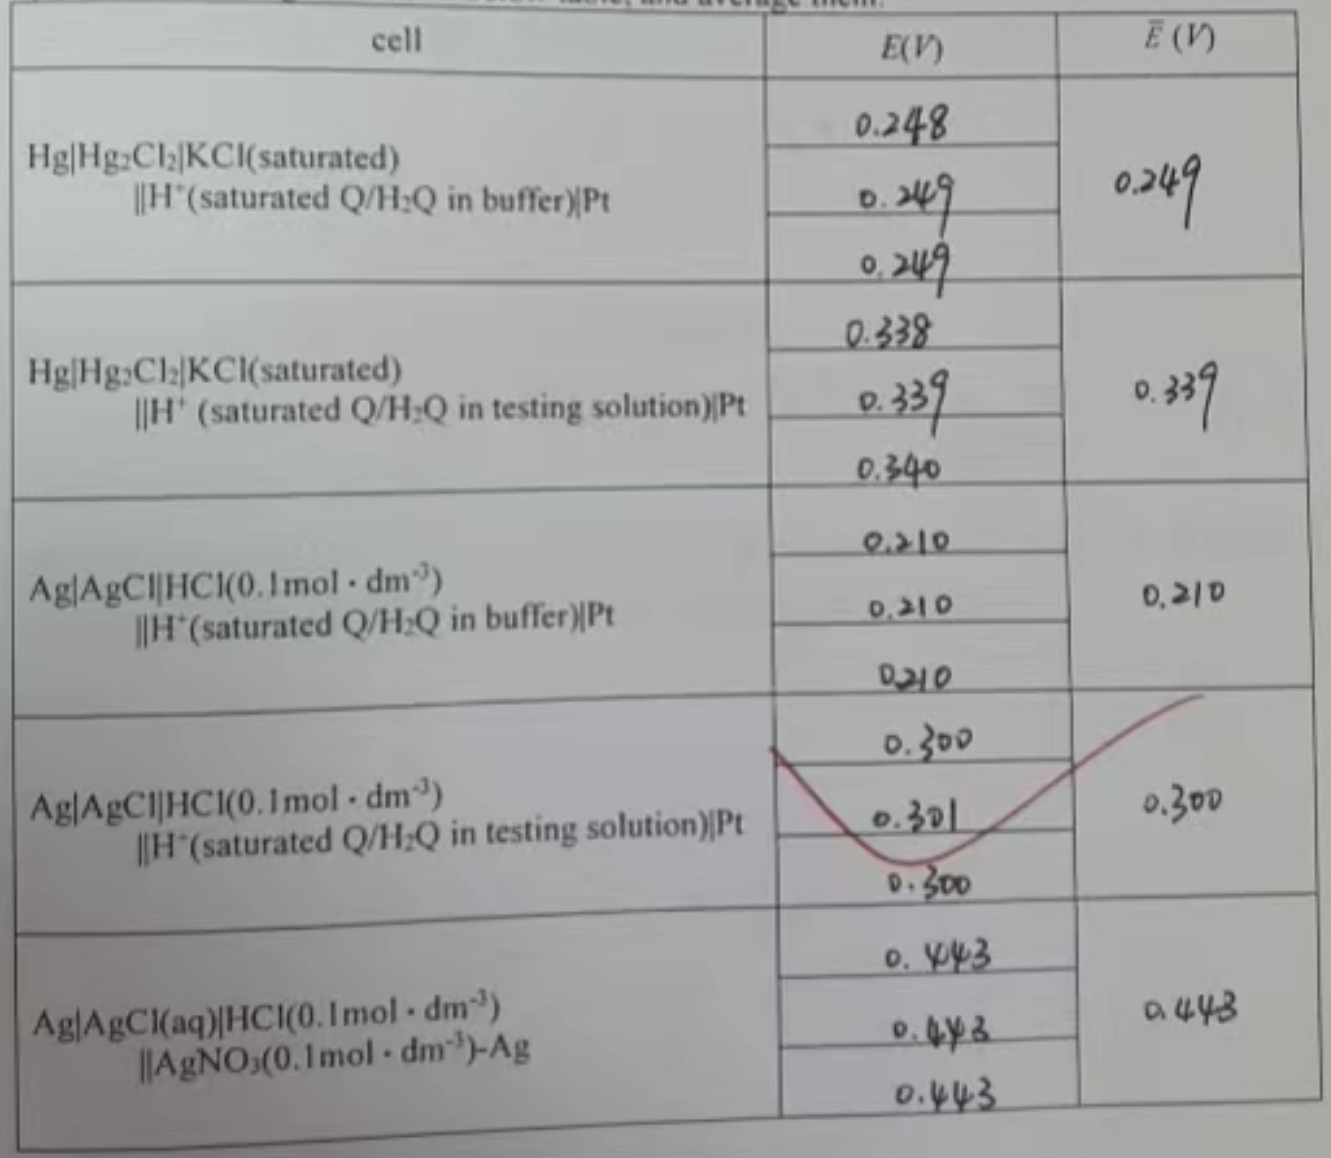 and average them.
cell E(V) Ē (V)
0.248
Hg|Hg₂Cl₂|KCl(saturated)
||H⁺(saturated Q/H₂Q in buffer)|Pt
0.249
0.249
0.249
0.338
Hg|Hg₂Cl₂|KCl(saturated)
||H⁺ (saturated Q/H₂Q in testing solution)|Pt
0.339
0.339
0.340
0.210
Ag|AgCl||HCl(0.1mol · dm⁻³)
||H⁺(saturated Q/H₂Q in buffer)|Pt
0.210
0.210
0.210
0.300
Ag|AgCl||HCl(0.1mol · dm⁻³)
||H⁺(saturated Q/H₂Q in testing solution)|Pt
0.301
0.300
0.300
0.443
Ag|AgCl(aq)|HCl(0.1mol · dm⁻³)
||AgNO₃(0.1mol · dm⁻³)-Ag
0.443
0.443
0.443